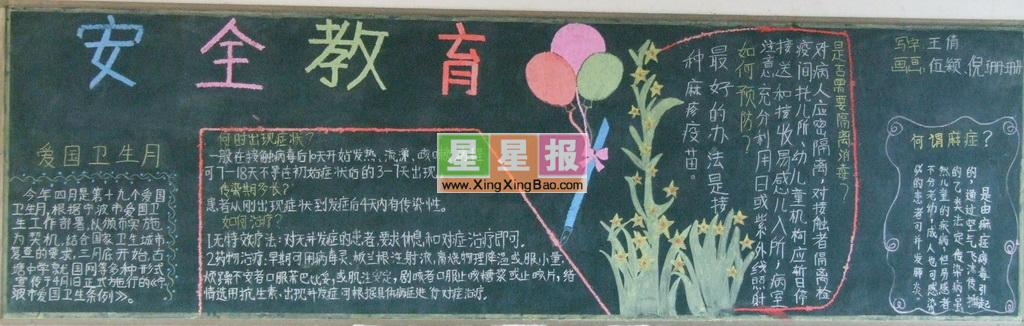 安全教育
爱国卫生月
今年四月是第十九个爱国
卫生月,根据宁波市爱国卫
生工作部署,以
为契机,结合国家卫生城市
复查的要求,三月底开始,古
塘中学就国网等多种形式
宣传于4月1日正式施行的《宁
波市爱国卫生条例》。
何时出现症状?
一般在接触病毒后10天开始发热、流涕、咳
可7—18天不等在初始症状后的3—7天出现
传染期多长?
患者从刚出现症状到发症后4天内有传染性。
如何治疗?
1.无特效疗法:对无并发症的患者,要求休息,和对症治疗即可。
2.药物治疗:早期可用病毒灵、板兰根注射液,高烧物理降温或服小量
烦躁不安者口服苯巴比妥,或肌注安定,剧咳者口服止咳糖浆或止咳片,
情选用抗生素、出现并发症可根据具体病症进行对症治疗。
星星报
www.XingXingBao.com
是否需要隔离消毒?
对病人应密隔离,对接触者隔离检
疫间托儿所、幼儿童机构应暂停
接送和接收易感儿入所,病室
注意充分利用日或紫外线照射
如何预防?
最好的办法是接
种麻疹疫苗。
写字 王倩
画画 伍颖、倪珊珊
何谓麻症?
是由麻症病毒引起
的,通过空气飞沫传播
的乙类法定传染病,虽
然儿童的疾病,但易患者
不分老幼,成人也可感染
的患者可并发肺炎。